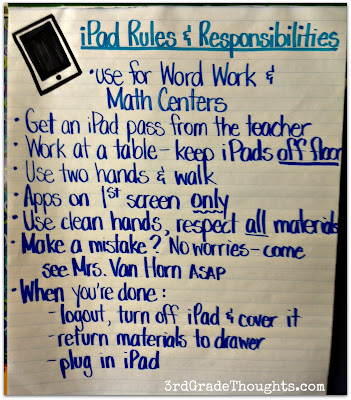 iPad Rules & Responsibilities
• use for Word Work &
Math Centers
• Get an iPad pass from the teacher
• Work at a table - keep iPads off floor
• Use two hands & walk
• Apps on 1st screen only
• Use clean hands, respect all materials
• Make a mistake? No worries - come
see Mrs. Van Horn ASAP
• When you're done:
- logout, turn off iPad & cover it
- return materials to drawer
- plug in iPad
3rdGradeThoughts.com